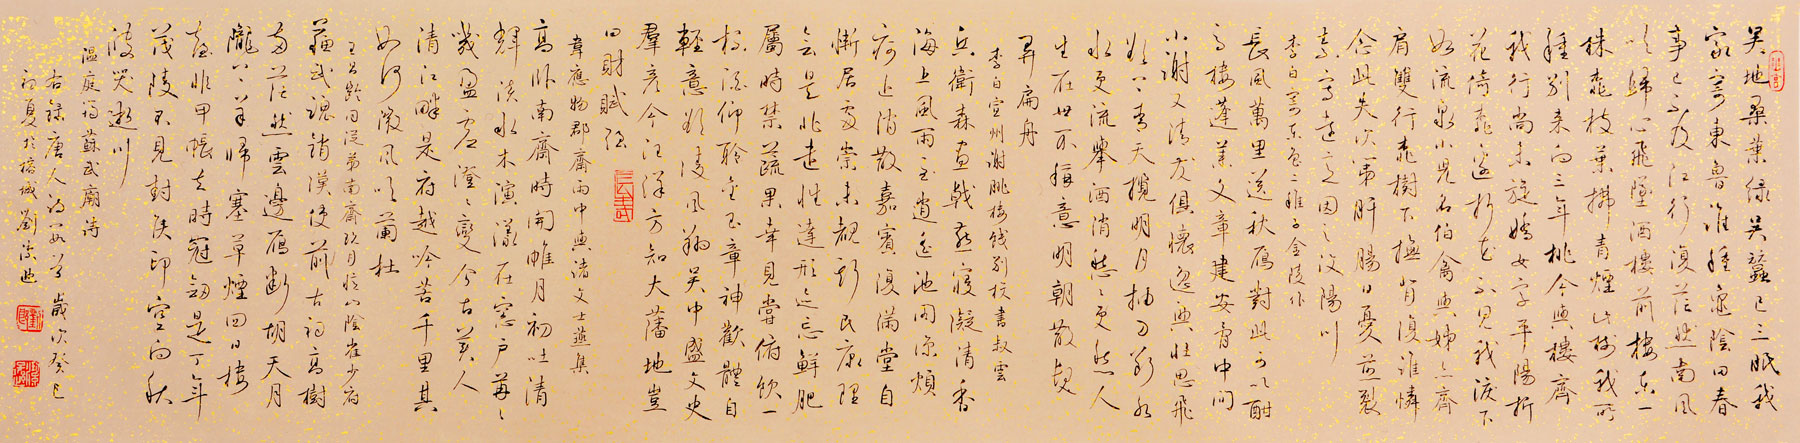 吴地桑葉緑吴蠶已三眠我
家寄東魯誰種龜陰田春
事已不及江行復茫然南風
吹歸心飛墮酒樓前樓東一
株桃枝葉拂青煙此樹我所
種别来向三年桃今與樓齊
我行尚未旋嬌女字平陽折
花倚桃邊折花不見我淚下
如流泉小兒名伯禽與姊亦齊
肩雙行桃樹下撫背復誰憐
念此失次第肝腸日憂煎裂
素寫遠意因之汶陽川
李白寄東魯二稚子金陵作
長風萬里送秋雁對此可以酣
高樓蓬莱文章建安骨中間
小謝又清發俱懷逸興壯思飛
欲上青天攬明月抽刀斷水
水更流舉酒消愁愁更愁人
生在世不稱意明朝散髮
弄扁舟
李白宣州謝朓樓餞别校書叔雲
兵衛森畫戟燕寢凝清香
海上風雨至逍遥池閣涼煩
疴近消散嘉賓復滿堂自
慚居處崇未睹斯民康理
會是非遣性達形迹忘鮮肥
屬時禁蔬果幸見嘗俯飲一
杯酒仰聆金玉章神歡體自
輕意欲淩風翔吴中盛文史
羣彦今汪洋方知大藩地豈
曰財賦强
韋應物郡齋雨中與諸文士燕集
高卧南齋時開帷月初吐清
輝淡水木演漾在窗戶苒々
幾盈虚澄々變今古美人
清江畔是夜越吟苦千里其
如何微風吹蘭杜
王昌齡同從弟南齋玩月憶山陰崔少府
蘓武魂銷漢使前古祠高樹
两茫然雲邊雁斷胡天月
隴上羊歸塞草煙回日樓
臺非甲帳去時冠劍是丁年
茂陵不見封侯印空向秋
波哭逝川
温庭筠蘇武廟詩
右録唐人詩 首 歲次癸巳
初夏於榕城劉